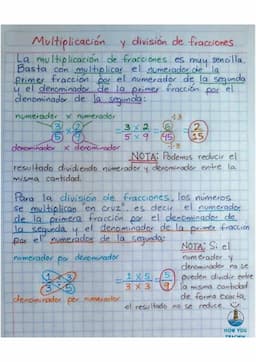 Multiplicación y división de fracciones
La multiplicación de fracciones es muy sencilla.
Basta con multiplicar el numerador de la
primer fracción por el numerador de la segunda
y el denominador de la primer fracción por el
denominador de la segunda:
numerador x numerador
3/5 x 2/9 = 3 x 2 / 5 x 9 = 6/45 ÷3 ÷3 = 2/15
denominador x denominador
NOTA: Podemos reducir el
resultado dividiendo numerador y denominador entre la
misma cantidad.
Para la división de fracciones, los números
se multiplican en cruz, es decir el numerador
de la primera fracción por el denominador de
la segunda y el denominador de la primer fracción
por el numerador de la segunda:
NOTA: Si el
numerador y
denominador no se
pueden dividir entre
la misma cantidad
de forma exacta,
el resultado no se reduce.
numerador por denominador
= 1 x 5 / 3 x 3 = 5/9
denominador por numerador
HOW YOU